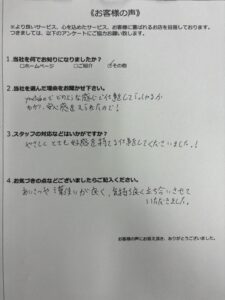 《お客様の声》
※より良いサービス、心を込めたサービス、お客様に喜ばれるお店を目指しております。
つきましては、以下のアンケートにご協力お願い致します。
1.当社を何でお知りになりましたか？
□ホームページ □ご紹介 ☑その他
2.当社を選んだ理由をお聞かせ下さい。
youtubeでどのような感じで仕事をしているか
わかり、安心感をえられたので！
3.スタッフの対応などはいかがですか？
やさしくとても好感を持てる仕事をしてくださいました！
4.お気づきの点などございましたらご記入ください。
あいさつや言葉使いが良く、気持ち良く立ち合いさせて
いただきました。
お客様の声にお答え頂き、ありがとうございました。